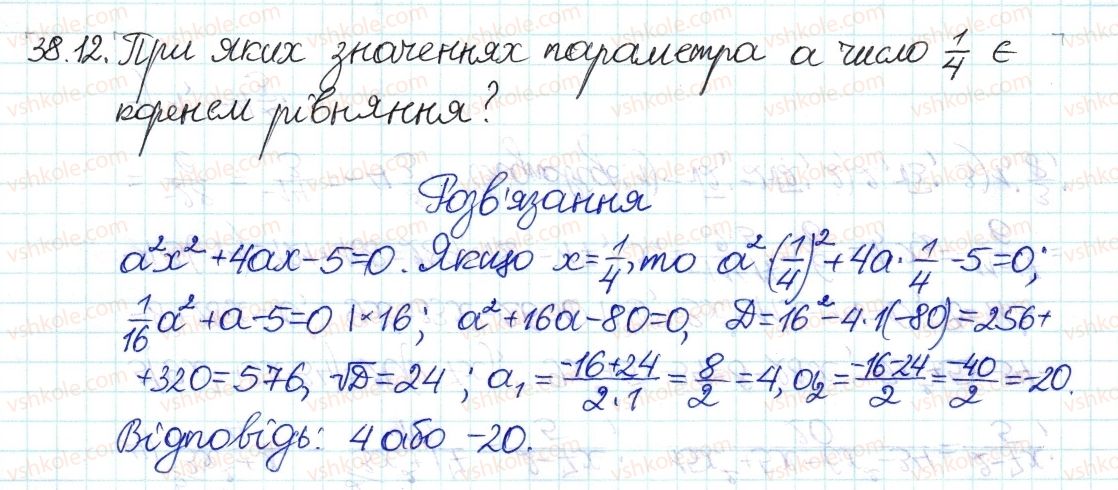 38.12. При яких значеннях параметра а число 1/4 є
коренем рівняння?
Розв'язання
a²x²+4ax-5=0. Якщо x=1/4, то a²(1/4)²+4a·1/4-5=0;
1/16a²+a-5=0 |×16; a²+16a-80=0, D=16²-4·1(-80)=256+
+320=576, √D=24; a₁=(-16+24)/(2·1)=8/2=4, a₂=(-16-24)/2=-40/2=-20.
Відповідь: 4 або -20.